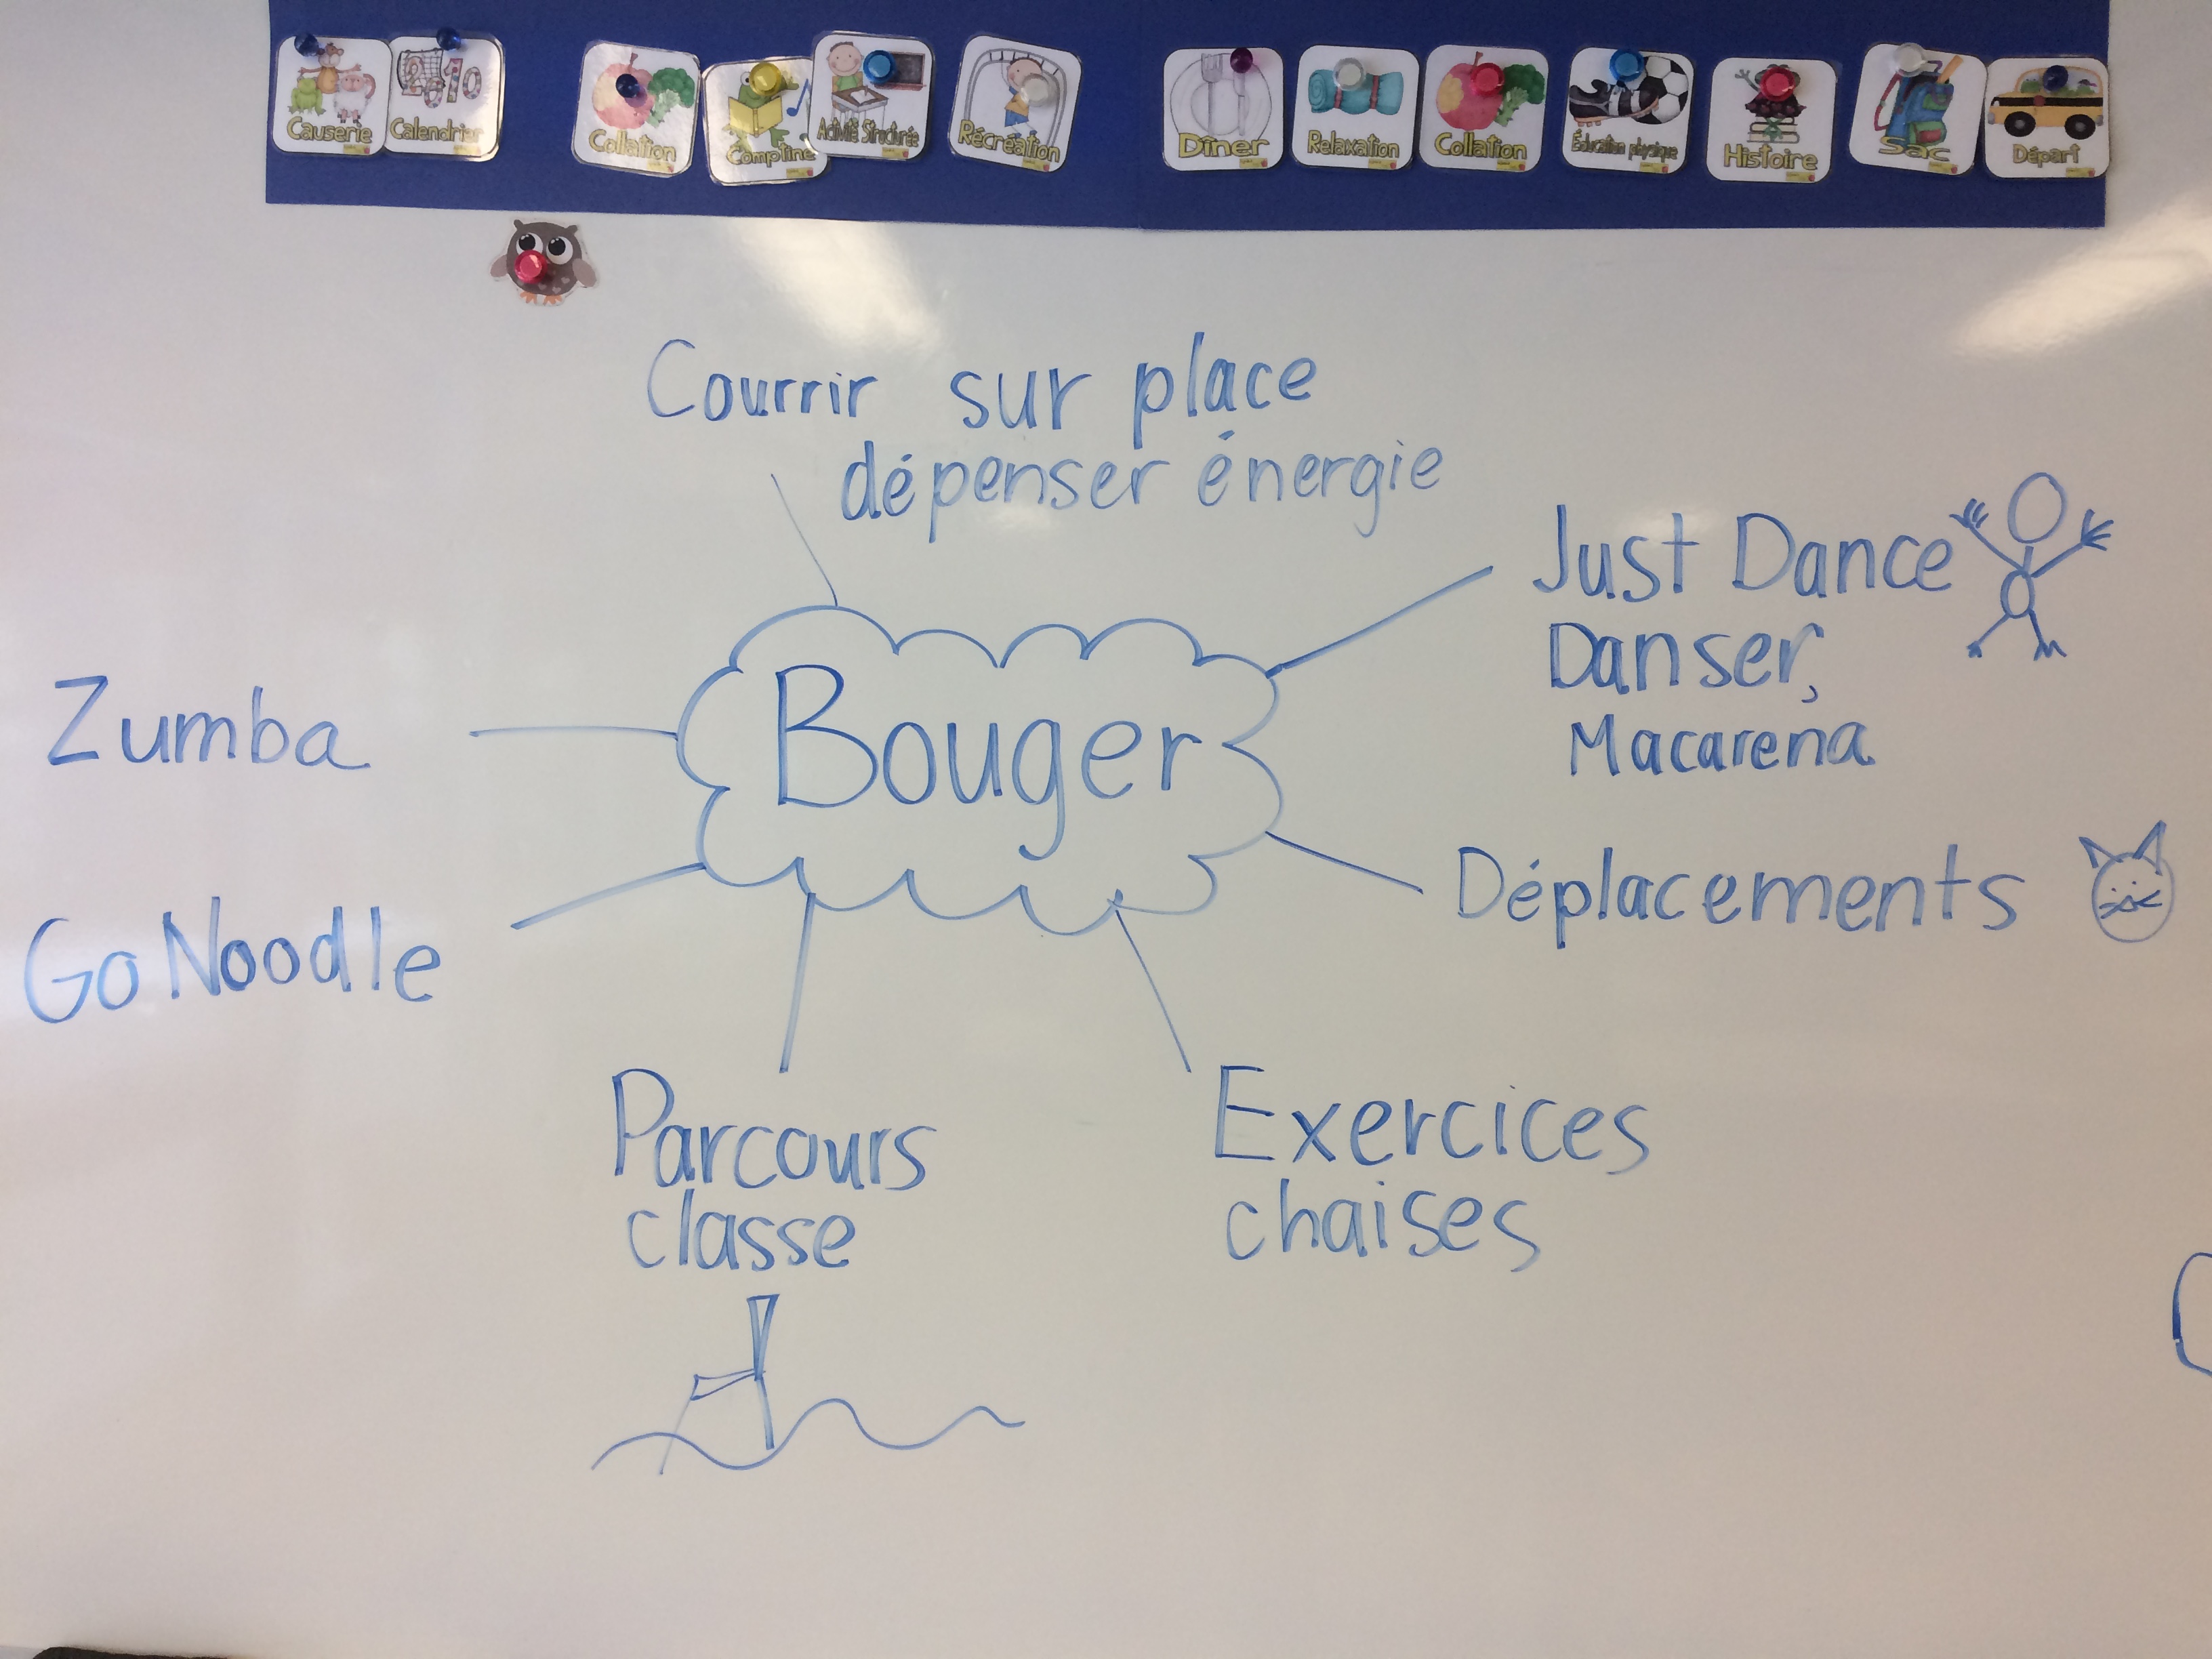 Causerie
Calendrier
Collation
Comptine
Activité Structurée
Récréation
Dîner
Relaxation
Collation
Éducation physique
Histoire
Sac
Départ
Courrir sur place
dépenser énergie
Just Dance
Danser,
Macarena
Zumba
Bouger
Déplacements
Go Noodle
Parcours
classe
Exercices
chaises